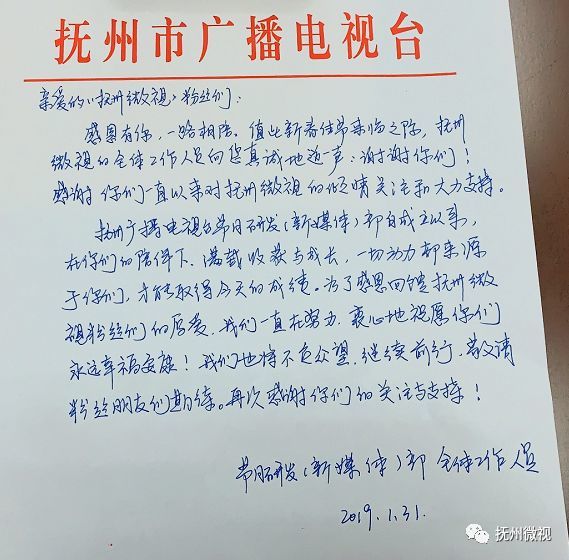 抚州市广播电视台
亲爱的《抚州微视》粉丝们：
感恩有你，一路相陪。值此新春佳节来临之际，抚州
微视的全体工作人员向您真诚地道一声：谢谢你们！
感谢你们一直以来对抚州微视的倾情关注和大力支持。
抚州广播电视台节目研发（新媒体）部自成立以来，
在你们的陪伴下，满载收获与成长，一切动力都来源
于你们，才能取得今天的成绩。为了感恩回馈抚州微
视粉丝们的厚爱，我们一直在努力，衷心地祝愿你们
永远幸福安康！我们也将不负众望，继续前行，敬请
粉丝朋友们期待。再次感谢你们的关注与支持！
节目研发（新媒体）部 全体工作人员
2019.1.31.
抚州微视